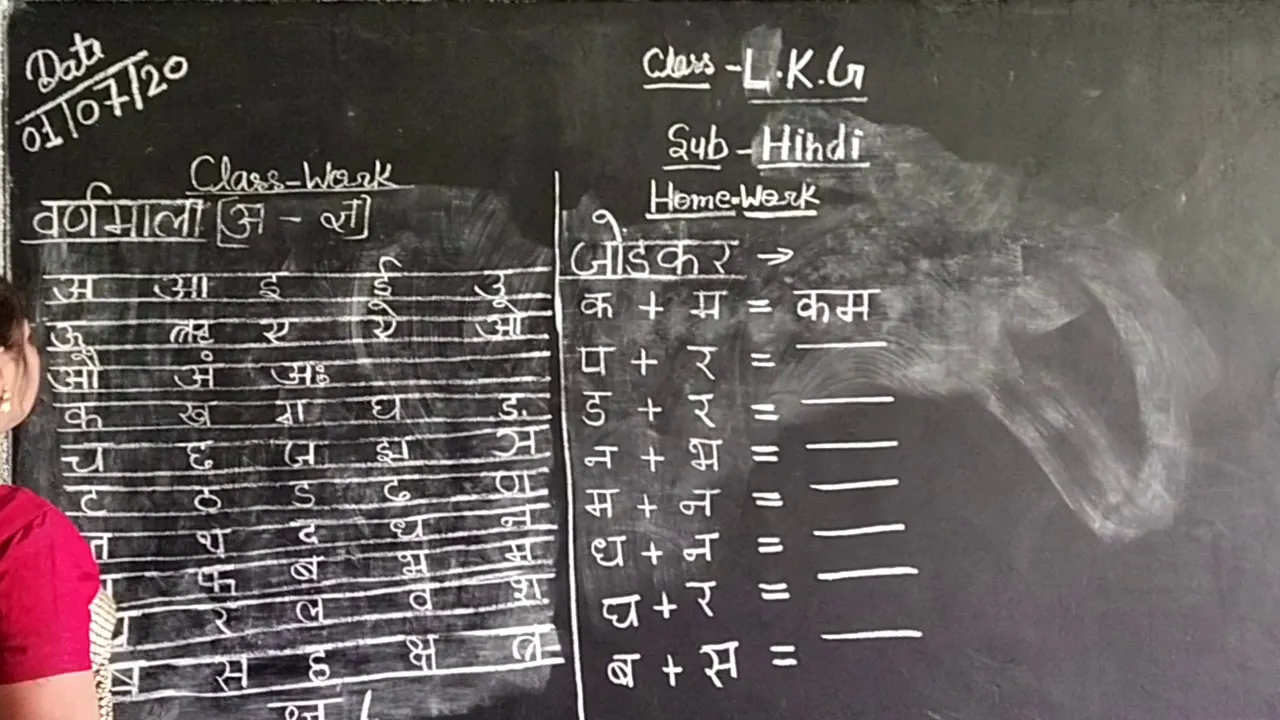 Date
01/07/20
Class-Work
वर्णमाला [अ - ज्ञ]
अ आ इ ई उ
ऊ ऋ ए ऐ ओ
औ अं अः
क ख ग घ ङ
च छ ज झ ञ
ट ठ ड ढ ण
त थ द ध न
फ ब भ म
य र ल व श
ष स ह क्ष त्र
ज्ञ
Class - L.K.G
Sub - Hindi
Home-Work
जोडकर →
क + म = कम
प + र =
ड + र =
न + भ =
म + न =
ध + न =
घ + र =
ब + स =